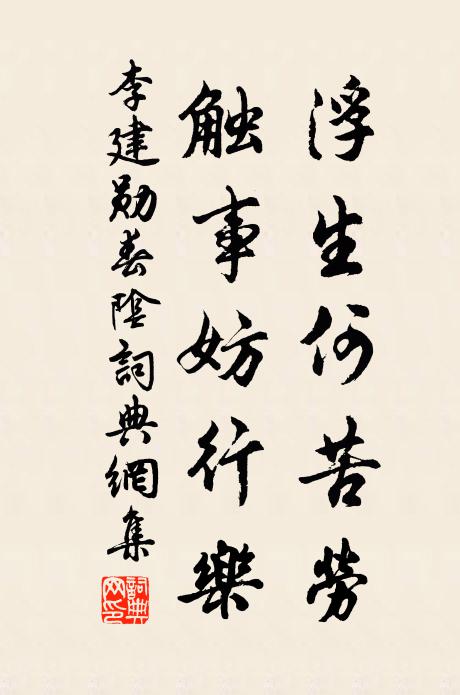 浮生何苦劳
触事妨行樂
李建勋春陰詞典網集
詞典网印